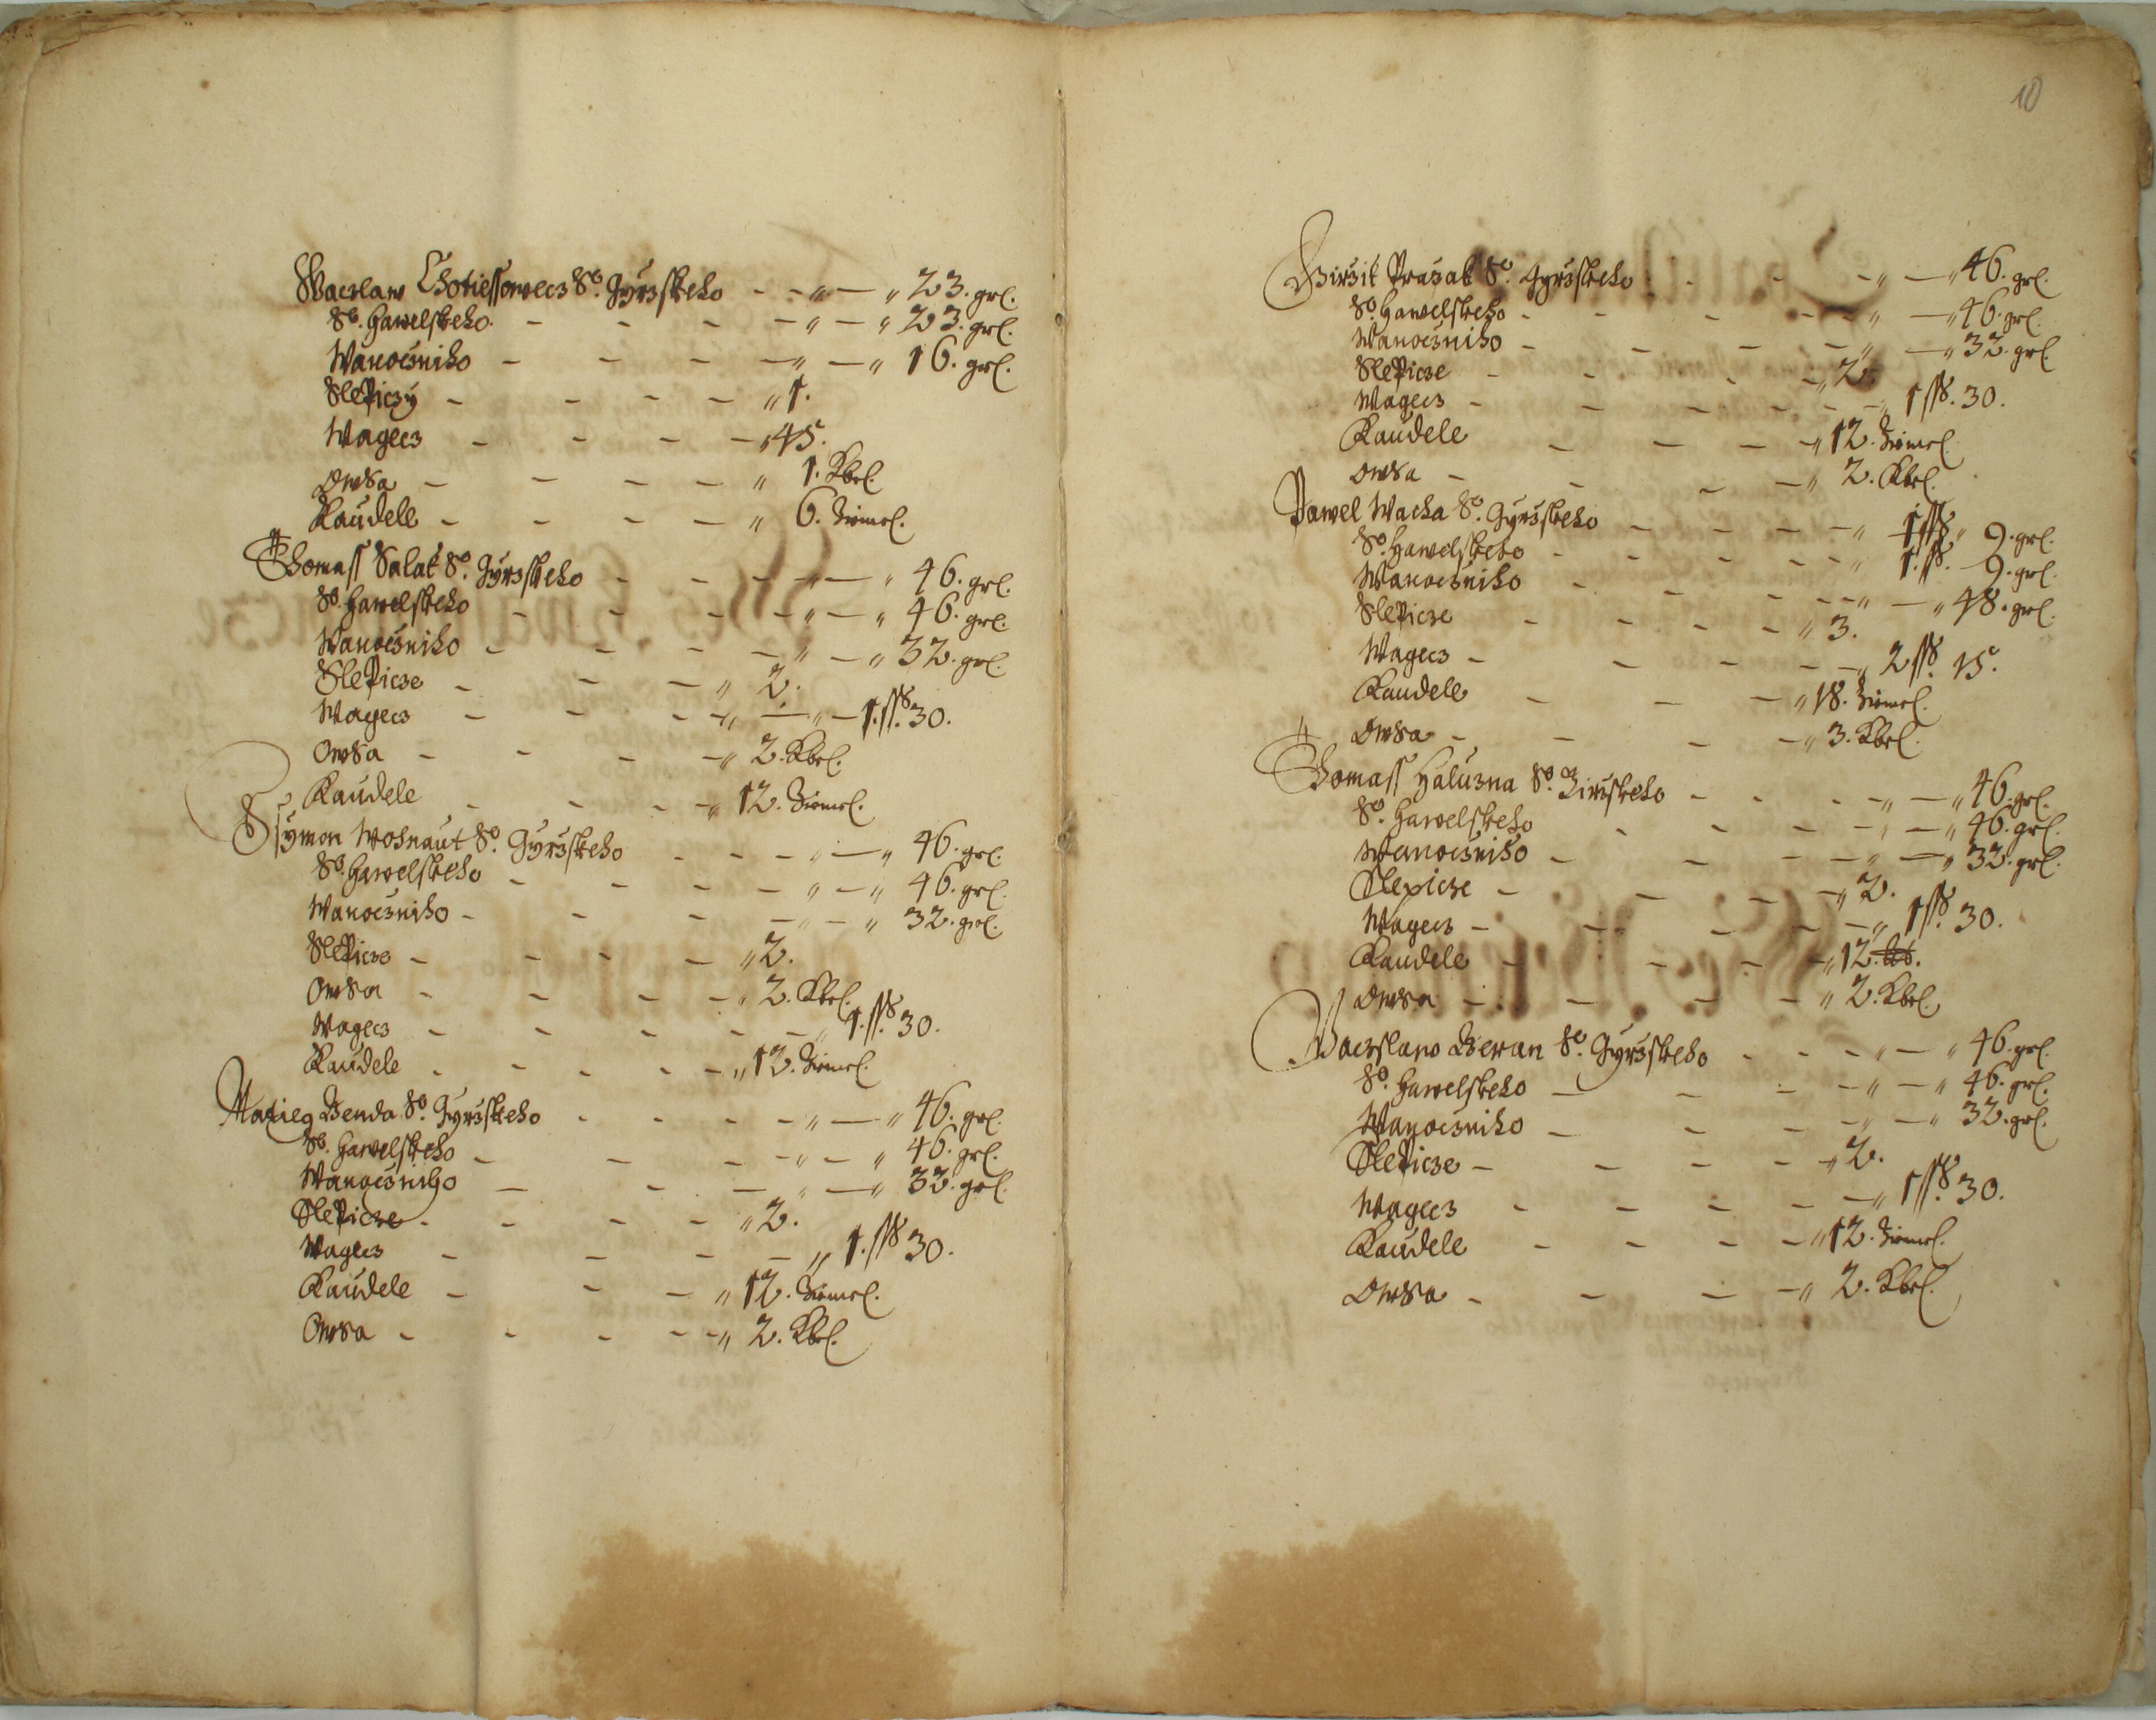 Waczlaw Chotiessowecz So. Gyrzskeho - - „ — „ 23. grl.
So. Hawelskeho - - - - „ — „ 23. grl.
Wanoczniho - - - - „ — „ 16. grl.
Slepiczy - - - - „ 1.
Wagecz - - - - „ 45.
Owsa - - - - „ 1. Kbel.
Kaudele - - - - „ 6. Zirnel.
Thomass Salat So. Gyrzskeho - - - „ — „ 46. grl.
So. Hawelskeho - - - - „ — „ 46. grl.
Wanoczniho - - - - „ — „ 32. grl.
Slepicze - - - „ 2.
Wagecz - - - - „ — „ — 1. ss. 30.
Owsa - - - - „ 2. Kbel.
Kaudele - - - - „ 12. Zirnel.
Ssymon Wohnaut So. Gyrzskeho - - - - „ — „ 46. grl.
So. Hawelskeho - - - - „ — „ 46. grl.
Wanoczniho - - - - „ — „ 32. grl.
Slepicze - - - - „ 2.
Owsa - - - - „ 2. Kbel.
Wagecz - - - - - „ 1. ss. 30.
Kaudele - - - - - „ 12. Zirnel.
Matieg Benda So. Gyrzskeho - - - - „ — „ 46. grl.
So. Hawelskeho - - - - „ — „ 46. grl.
Wanoczniho - - - „ — „ 32. grl.
Slepicze - - - - „ 2.
Wagecz - - - - „ 1. ss. 30.
Kaudele - - - „ 12. Zirnel.
Owsa - - - - „ 2. Kbel.
10
Girzik Prazak So. Gyrzskeho - - - „ — „ 46. grl.
So. Hawelskeho - - - - - „ — „ 46. grl.
Wanoczniho - - - - „ — „ 32. grl.
Slepicze - - - - „ 2.
Wagecz - - - - - „ 1 ss. 30.
Kaudele - - - - „ 12. Zirnel.
Owsa - - - - „ 2. Kbel.
Pawel Wacha So. Gyrzskeho - - - - - „ 1 ss „ 9. grl.
So. Hawelskeho - - - - - „ 1. ss. — 9. grl.
Wanoczniho - - - - - „ — „ 48. grl.
Slepicze - - - - „ 3.
Wagecz - - - - - „ 2 ss. 15.
Kaudele - - - „ 18. Zirnel.
Owsa - - - - „ 3. Kbel.
Thomass Haluzna So. Girzskeho - - - - „ — „ 46 grl.
So. Hawelskeho - - - - „ — „ 46. grl.
Wanoczniho - - - - „ — „ 32. grl.
Slepicze - - - - „ 2.
Wagecz - - - - - „ 1 ss. 30.
Kaudele - - - - „ 12.
Owsa - - - - „ 2. Kbel.
Waczslaw Beran So. Gyrzskeho - - - „ — „ 46. grl.
So. Hawelskeho - - - - „ — „ 46. grl.
Wanoczniho - - - - „ — „ 32. grl.
Slepicze - - - - „ 2.
Wagecz - - - - - „ 1 ss. 30.
Kaudele - - - - „ 12. Zirnel.
Owsa - - - - „ 2. Kbel.